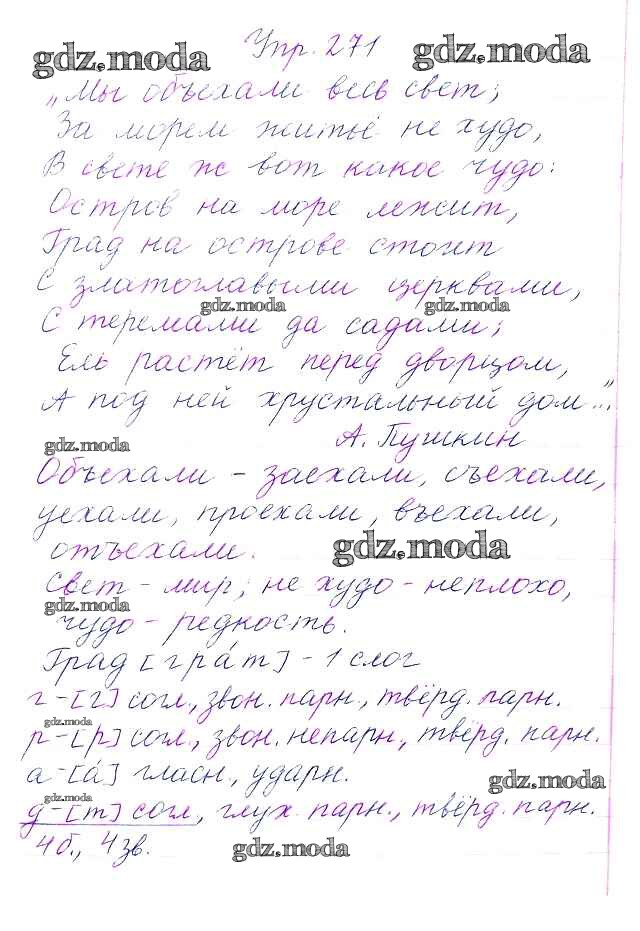 gdz.moda Упр. 271 gdz.moda
„Мы объехали весь свет;
За морем житьё не худо,
В свете ж вот какое чудо:
Остров на море лежит,
Град на острове стоит
С златоглавыми церквами,
gdz.moda gdz.moda
С теремами да садами;
Ель растёт перед дворцом,
А под ней хрустальный дом..."
gdz.moda А. Пушкин
Объехали - заехали, съехали,
уехали, проехали, въехали,
отъехали. gdz.moda
Свет - мир; не худо - неплохо,
gdz.moda
чудо - редкость.
Град [грáт] - 1 слог
г - [г] согл., звон. парн., твёрд. парн.
gdz.moda
р - [р] согл., звон. непарн., твёрд. парн.
а - [á] гласн., ударн.
gdz.moda
gdz.moda
д - [т] согл., глух. парн., твёрд. парн.
4 б., 4 зв. gdz.moda